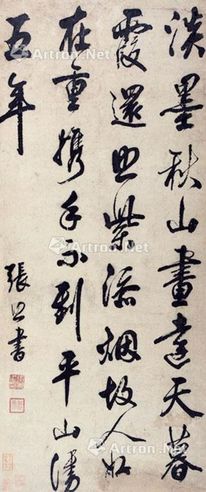 淡墨秋山畫遠天暮
霞還照紫添烟故人好
在重攜手不到平山謾
五年
張照書
Artron.Net
Artron.Net
Artron.Net
Artron.Net